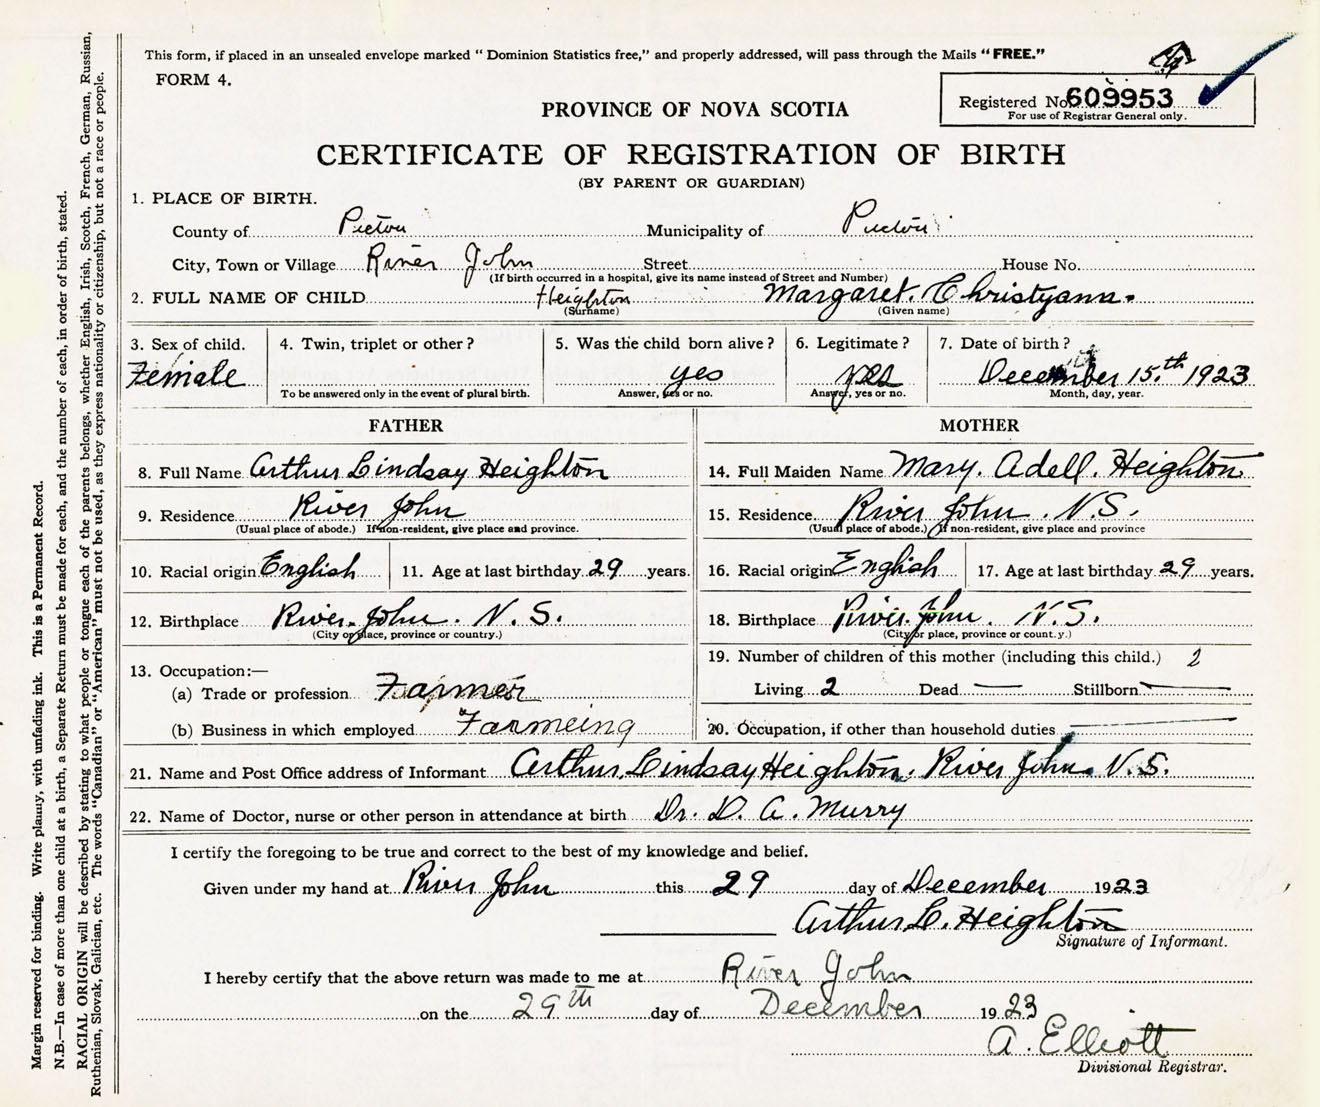 This form, if placed in an unsealed envelope marked "Dominion Statistics free," and properly addressed, will pass through the Mails "FREE."
FORM 4.
Registered No. 609953
For use of Registrar General only.
PROVINCE OF NOVA SCOTIA
CERTIFICATE OF REGISTRATION OF BIRTH
(BY PARENT OR GUARDIAN)
1. PLACE OF BIRTH.
County of Pictou Municipality of Pictou
City, Town or Village River John Street House No.
(If birth occurred in a hospital, give its name instead of Street and Number)
2. FULL NAME OF CHILD Heighton Margaret. Christyann.
(Surname) (Given name)
3. Sex of child. 4. Twin, triplet or other? 5. Was the child born alive? 6. Legitimate? 7. Date of birth?
Female yes yes December 15.th 1923
To be answered only in the event of plural birth. Answer, yes or no. Answer, yes or no. Month, day, year.
FATHER MOTHER
8. Full Name Arthur Lindsay Heighton 14. Full Maiden Name Mary. Adell. Heighton
9. Residence River John 15. Residence River John. N.S.
(Usual place of abode.) If non-resident, give place and province. (Usual place of abode.) If non-resident, give place and province
10. Racial origin English 11. Age at last birthday 29 years. 16. Racial origin English 17. Age at last birthday 29 years.
12. Birthplace River. John. N. S. 18. Birthplace River. John. N.S.
(City or place, province or country.) (City or place, province or count.y.)
13. Occupation:— 19. Number of children of this mother (including this child.) 2
(a) Trade or profession Farmer Living 2 Dead — Stillborn —
(b) Business in which employed Farmeing 20. Occupation, if other than household duties
21. Name and Post Office address of Informant Arthur Lindsay Heighton. River John. N.S.
22. Name of Doctor, nurse or other person in attendance at birth Dr. D. A. Murry
I certify the foregoing to be true and correct to the best of my knowledge and belief.
Given under my hand at River John this 29 day of December 1923
Arthur L. Heighton
Signature of Informant.
I hereby certify that the above return was made to me at River John
on the 29th day of December 1923
A. Elliott
Divisional Registrar.
Margin reserved for binding. Write plainly, with unfading ink. This is a Permanent Record.
N.B.—In case of more than one child at a birth, a Separate Return must be made for each, and the number of each, in order of birth, stated.
RACIAL ORIGIN will be described by stating to what people or tongue each of the parents belongs, whether English, Irish, Scotch, French, German, Russian,
Ruthenian, Slovak, Galician, etc. The words "Canadian" or "American" must not be used, as they express nationality or citizenship, but not a race or people.